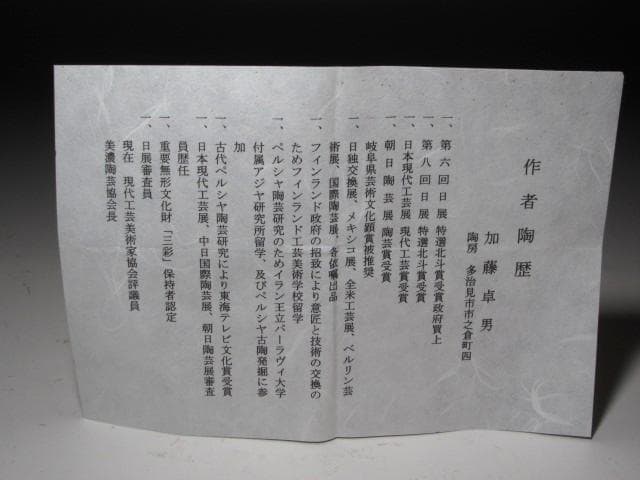 作者陶歴
加藤卓男
陶房 多治見市市之倉町四
一、第六回日展 特選北斗賞受賞政府買上
一、第八回日展 特選北斗賞受賞
一、日本現代工芸展 現代工芸賞受賞
一、朝日陶芸展 陶芸賞受賞
岐阜県芸術文化顕賞被推奨
一、日独交換展、メキシコ展、全米工芸展、ベルリン芸
術展、国際陶芸展、各依嘱出品
一、フィンランド政府の招致により意匠と技術の交換の
ためフィンランド工芸美術学校留学
一、ペルシヤ陶芸研究のためイラン王立パーラヴィ大学
付属アジヤ研究所留学、及びペルシヤ古陶発掘に参
加
一、古代ペルシヤ陶芸研究により東海テレビ文化賞受賞
一、日本現代工芸展、中日国際陶芸展、朝日陶芸展審査
員歴任
一、重要無形文化財「三彩」保持者認定
一、日展審査員
現在 現代工芸美術家協会評議員
美濃陶芸協会長